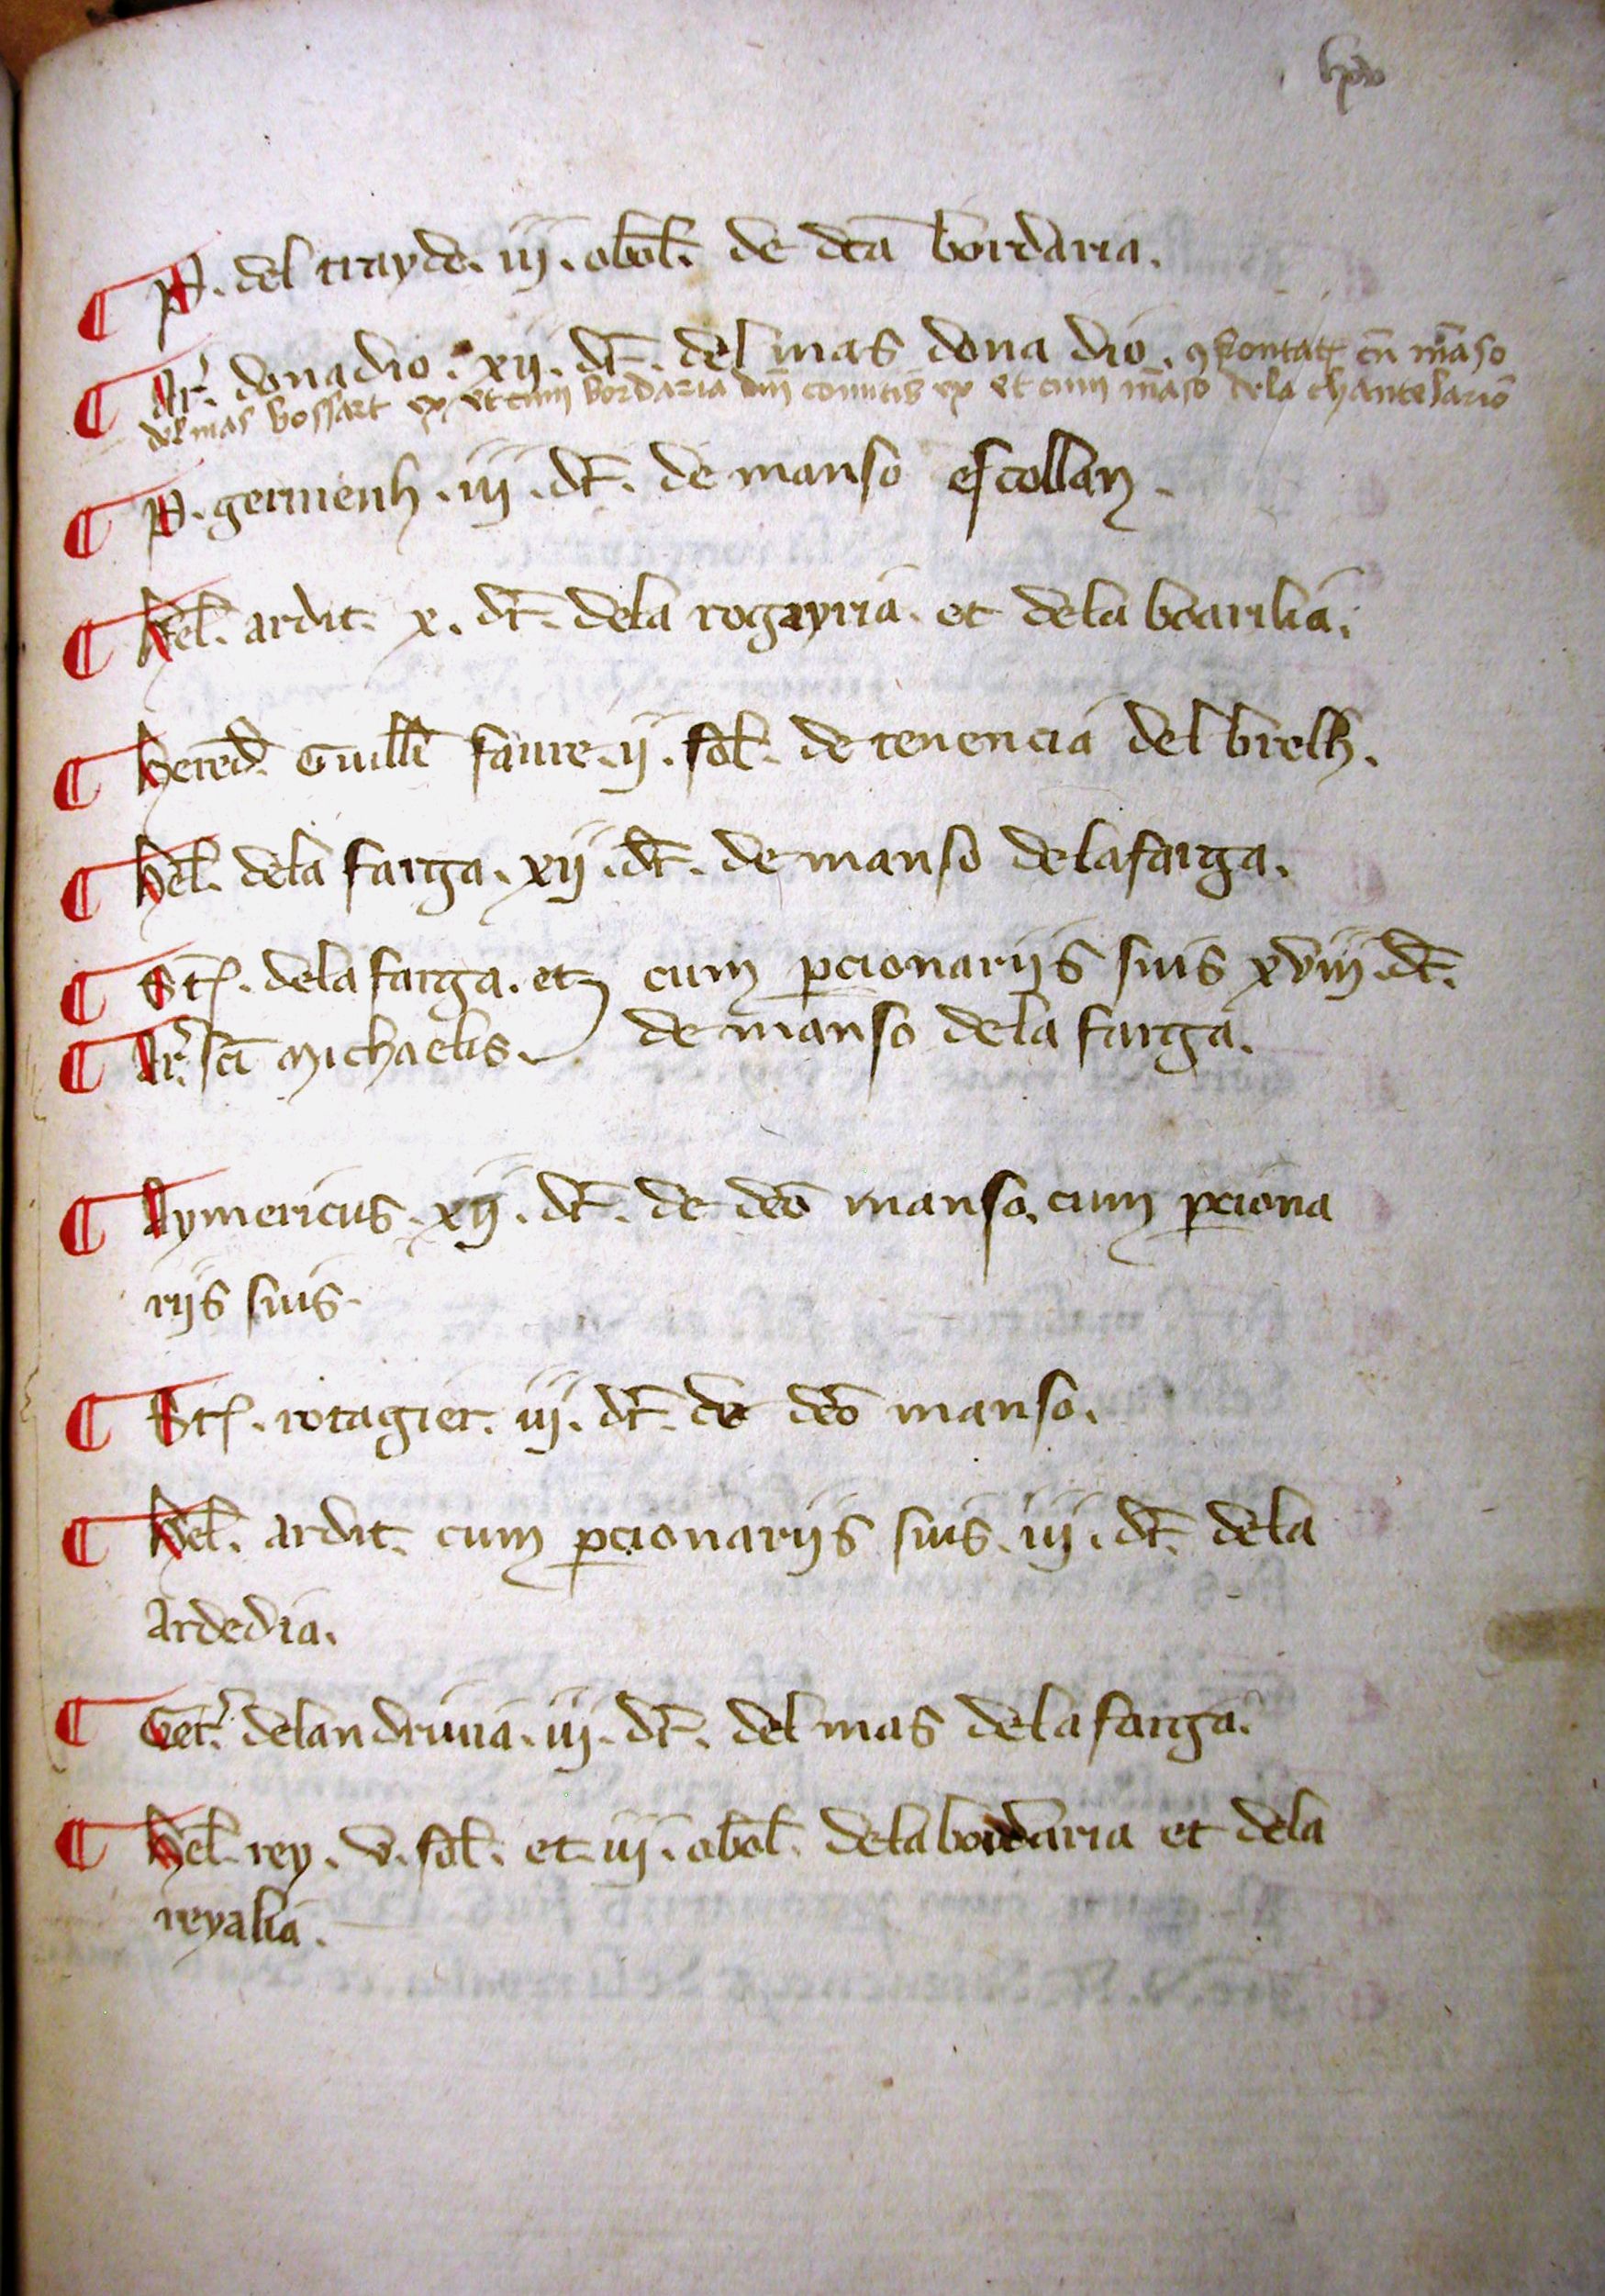 ¶ P. del trayde. iij. obol̄. de dc̄a bordaria.
¶ Ar̄. dona dio. xij. dr̄. del mas dona dio. 9frontat̄ cū māso
del mas bossart ex et cum bordaria dn̄i comitis ex et cum māso dela chantelario
¶ P. germenh. iij. dr̄. de manso escollan.
¶ hel̄. ardit. x. dr̄. dela rogayria. et dela boarilia.
¶ hered̄. Guill̄i faure. ij. sol̄. de tenencia del brelh.
¶ hel̄. dela farga. xij. dr̄. de manso dela farga.
¶ St̄. dela farga. et cum pcionariis suis xviij. dr̄.
¶ Ar̄. sc̄i michaelis. de manso dela farga.
¶ Aymericus. xij. dr̄. de dc̄o manso. cum pciona
riis suis.
¶ St̄. rotagier. iij. dr̄. de dc̄o manso.
¶ hel̄. ardit. cum pcionariis suis. iij. dr̄. dela
Ardedia.
¶ Get̄. delandriuia. iij. dr̄. del mas dela farga.
¶ hel̄. rey. v. sol̄. et iij. obol̄. dela bordaria et dela
reyalia.